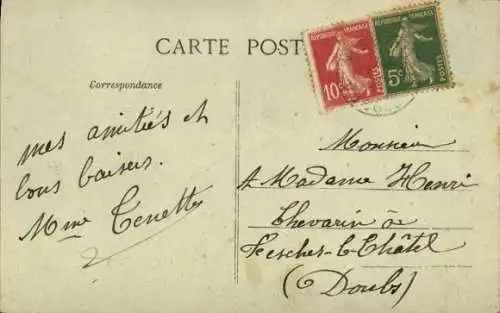 CARTE POST
RÉPUBLIQUE FRANÇAISE
10c
POSTES
RÉPUBLIQUE FRANÇAISE
5c
POSTES
Correspondance
mes amitiés et
bons baisers.
Mme
Monsieur
& Madame Henri
Thevarin à
Fesches-le-Châtel
(Doubs)